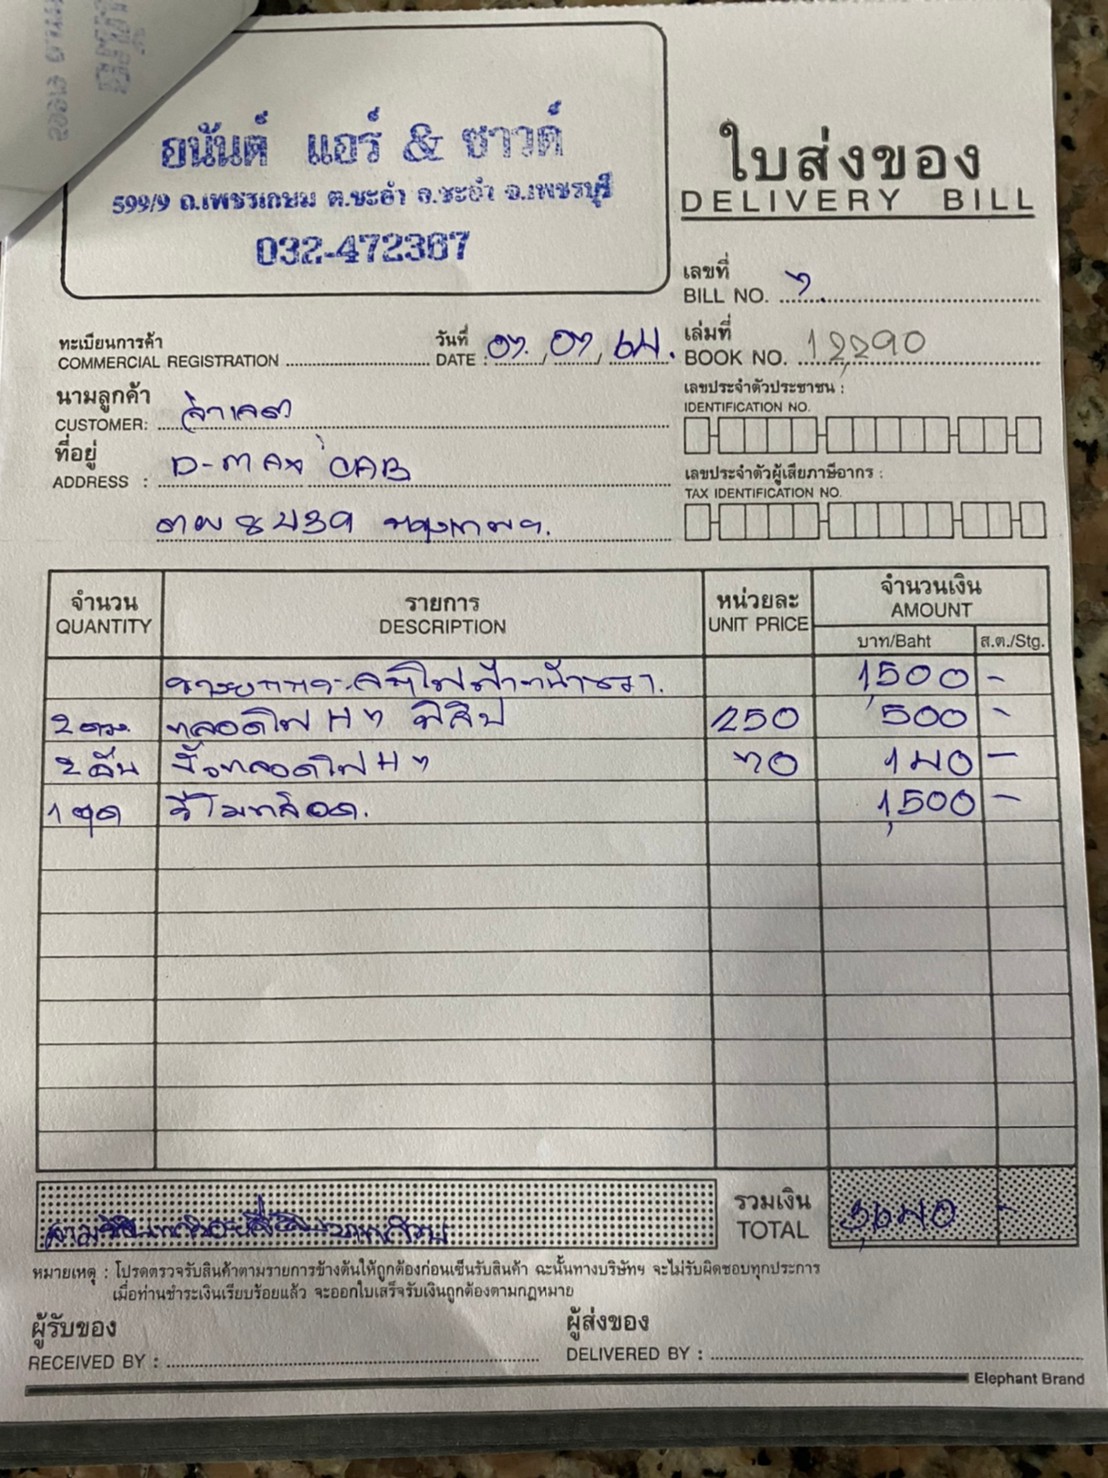 อนันต์ แอร์ & ซาวด์
599/9 ถ.เพชรเกษม ต.ชะอำ อ.ชะอำ จ.เพชรบุรี
032-472367
ใบส่งของ
DELIVERY BILL
เลขที่
BILL NO. 7.
ทะเบียนการค้า
COMMERCIAL REGISTRATION
วันที่
DATE : 07, 07, 64.
เล่มที่
BOOK NO. 12,290
นามลูกค้า
CUSTOMER:
เลขประจำตัวประชาชน :
IDENTIFICATION NO.
ที่อยู่
ADDRESS : D-max CAB
เลขประจำตัวผู้เสียภาษีอากร :
TAX IDENTIFICATION NO.
กรุงเทพฯ.
จำนวน รายการ หน่วยละ จำนวนเงิน
QUANTITY DESCRIPTION UNIT PRICE AMOUNT
บาท/Baht ส.ต./Stg.
1,500 -
2 ดวง หลอดไฟ H7 250 500 -
2 อัน ขั้วหลอดไฟ H7 70 140 -
1 ชุด รีโมทล็อค. 1,500 -
รวมเงิน
TOTAL 3,640 -
หมายเหตุ : โปรดตรวจรับสินค้าตามรายการข้างต้นให้ถูกต้องก่อนเซ็นรับสินค้า ฉะนั้นทางบริษัทฯ จะไม่รับผิดชอบทุกประการ
เมื่อท่านชำระเงินเรียบร้อยแล้ว จะออกใบเสร็จรับเงินถูกต้องตามกฎหมาย
ผู้รับของ
RECEIVED BY :
ผู้ส่งของ
DELIVERED BY :
Elephant Brand